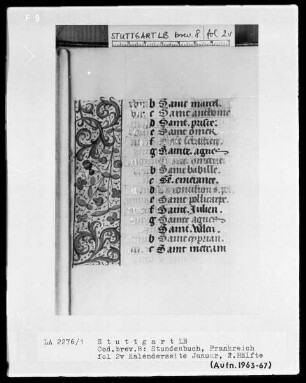 F 9
STUTTGART LB brev. 8 fol 2v
b Saint marcel.
c Saint anthoine
d Saint prisce.
e Saint omer
f
g Sainte agnes
b Saint babille.
c St. emerance.
d La conversion s. p.
e Saint policarpe.
f Saint Julien.
g Sainte agnes
Saint
b Saint cyprian.
c Saint metrain
LA 2276/1 Stuttgart LB
Cod.brev.8: Stundenbuch, Frankreich
fol 2v Kalenderseite Januar, 2.Hälfte
(Aufn.1963-67)